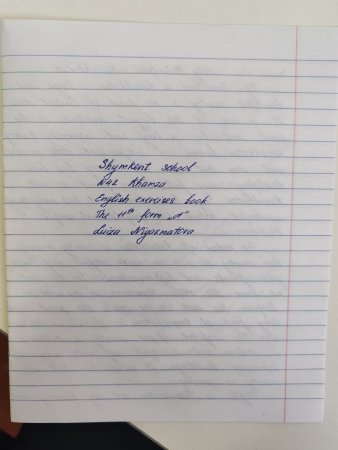 Shymkent school
№42 Khamza
English exercises book
The 11th form „A"
Luiza Niyazmatova